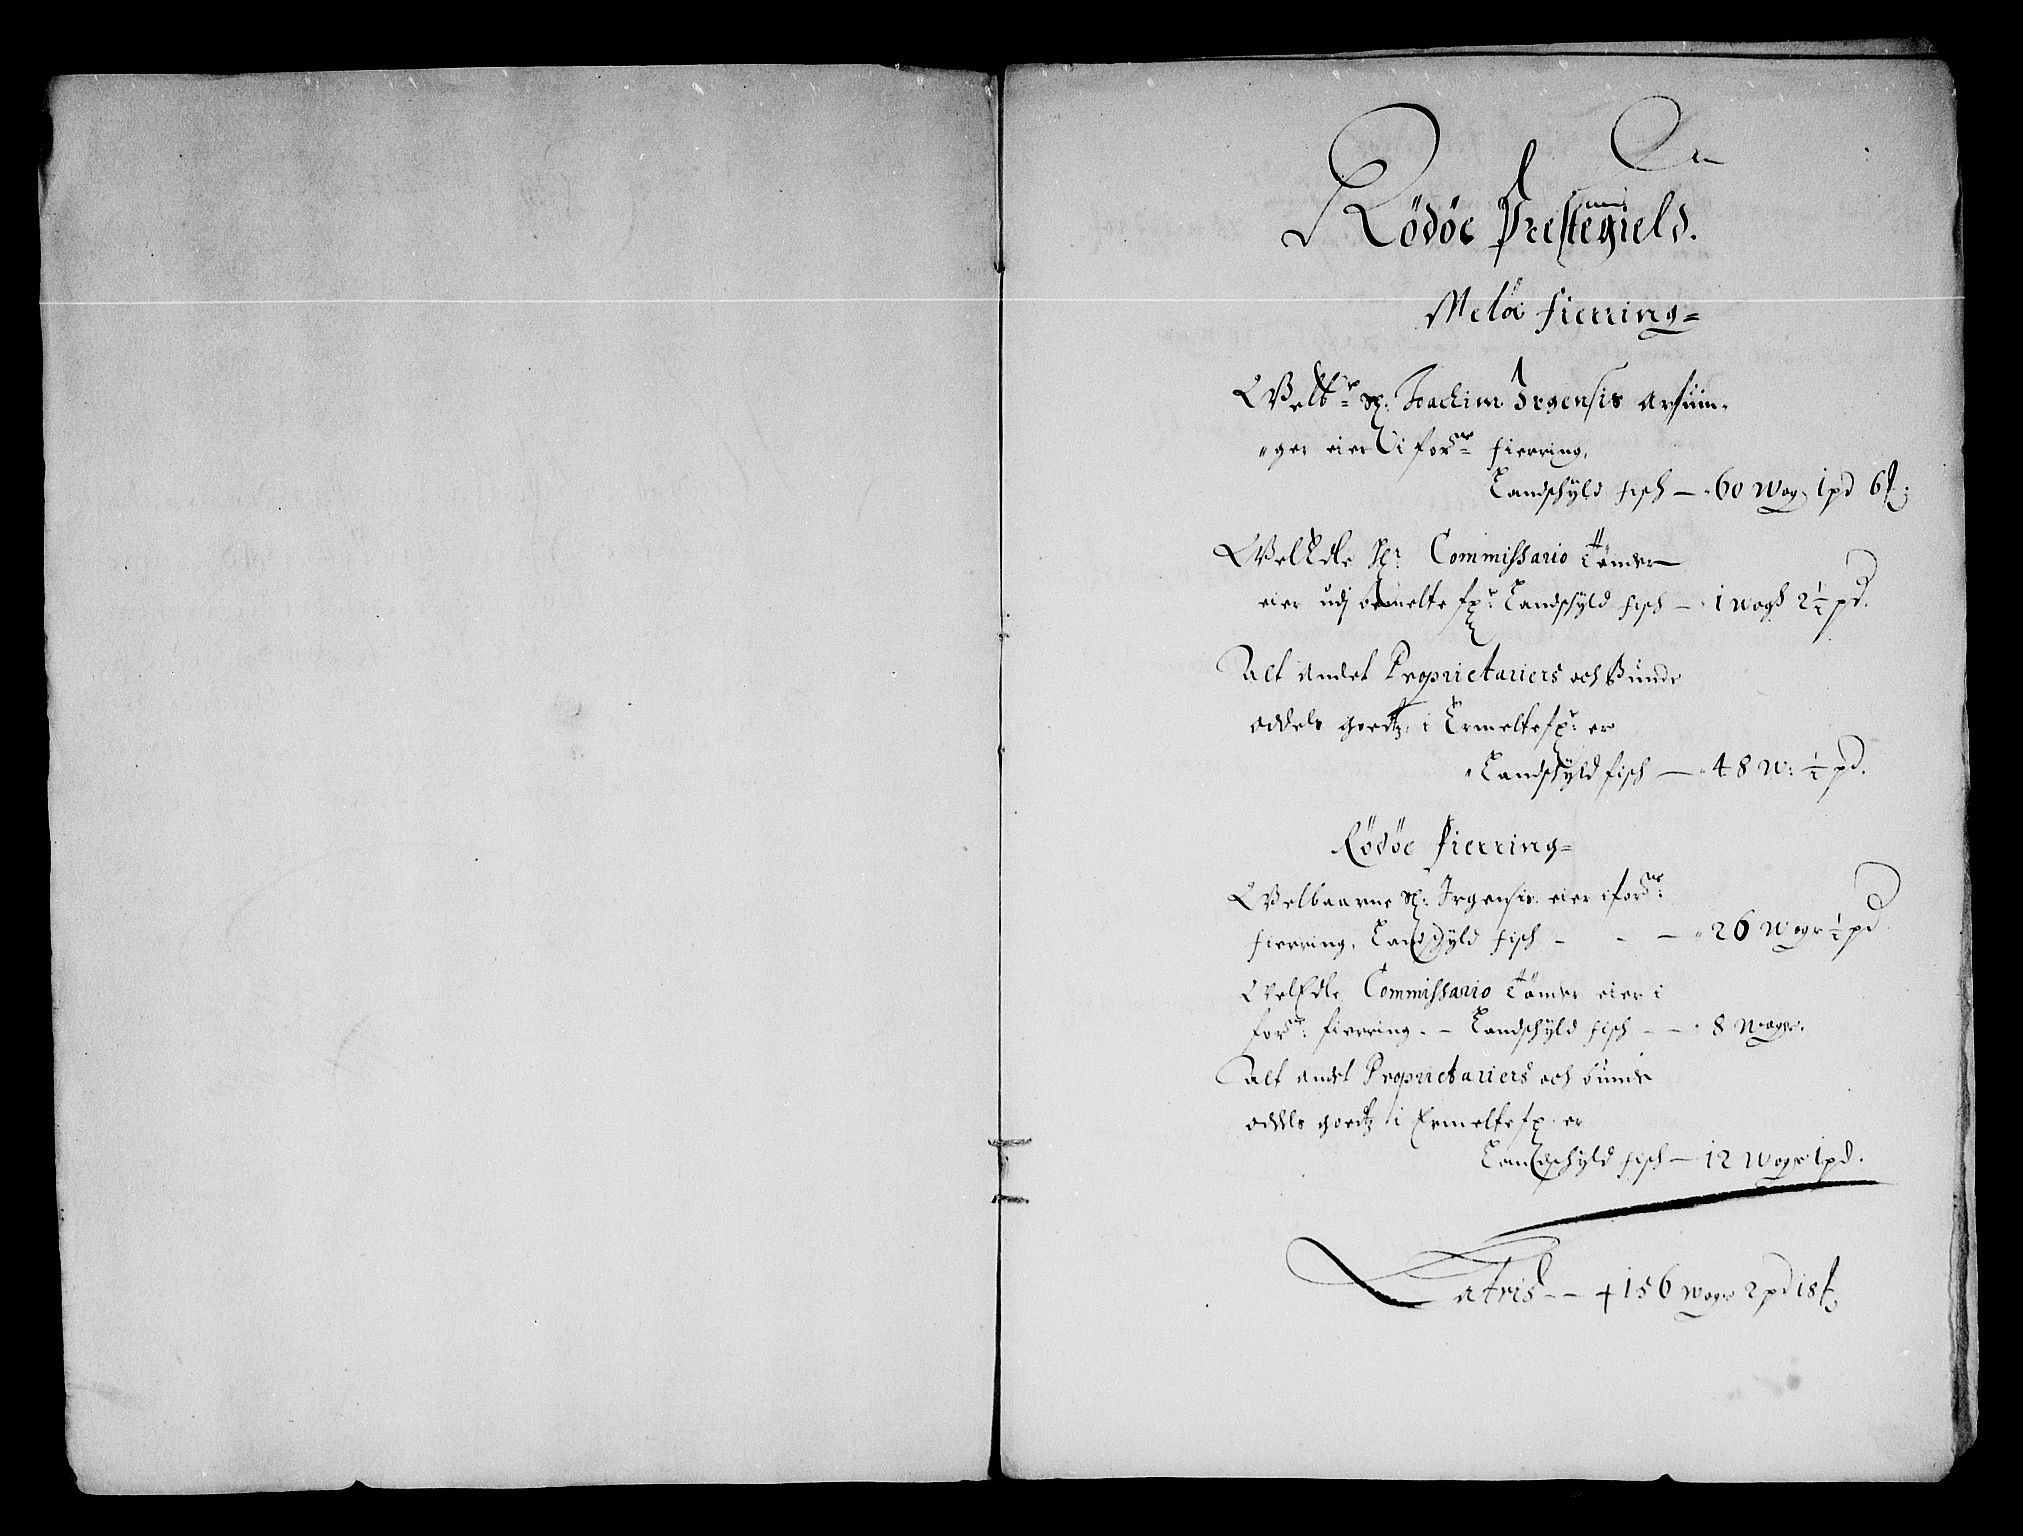 Rödöe Prestegield.
Melöe fierring=
Welb: Sl: Joachim Irgensis arfuin-
"ger eier i for: fierring,
Landschyld fisch — 60 Wog 1 pd 6 ℔
WelEdle Hr: Commissario Tönder
eier udj bemelte fr: Landschyld fisch — 1 wogh 2½ pd.
Alt andet Proprietariers och Bunde
oddels goedtz, i Ermelte fr: er
Landschyld fisch — 48 W: ½ pd.
Rödöe fierring=
Welbaarne Sl: Irgensis eier i for:
fierring, Landschyld fisch - - — 26 Wogr ½ pd
WelEdle Commissario Tönder eier i
for: fierring. - Landschyld fisch - - 8 wogr.
Alt andet Proprietariers och bunde
oddels goedtz i Ermelte fr er
Landschyld fisch — 12 Wogr 1 pd.
Latris - - + 156 wogr 2 pd 18 ℔